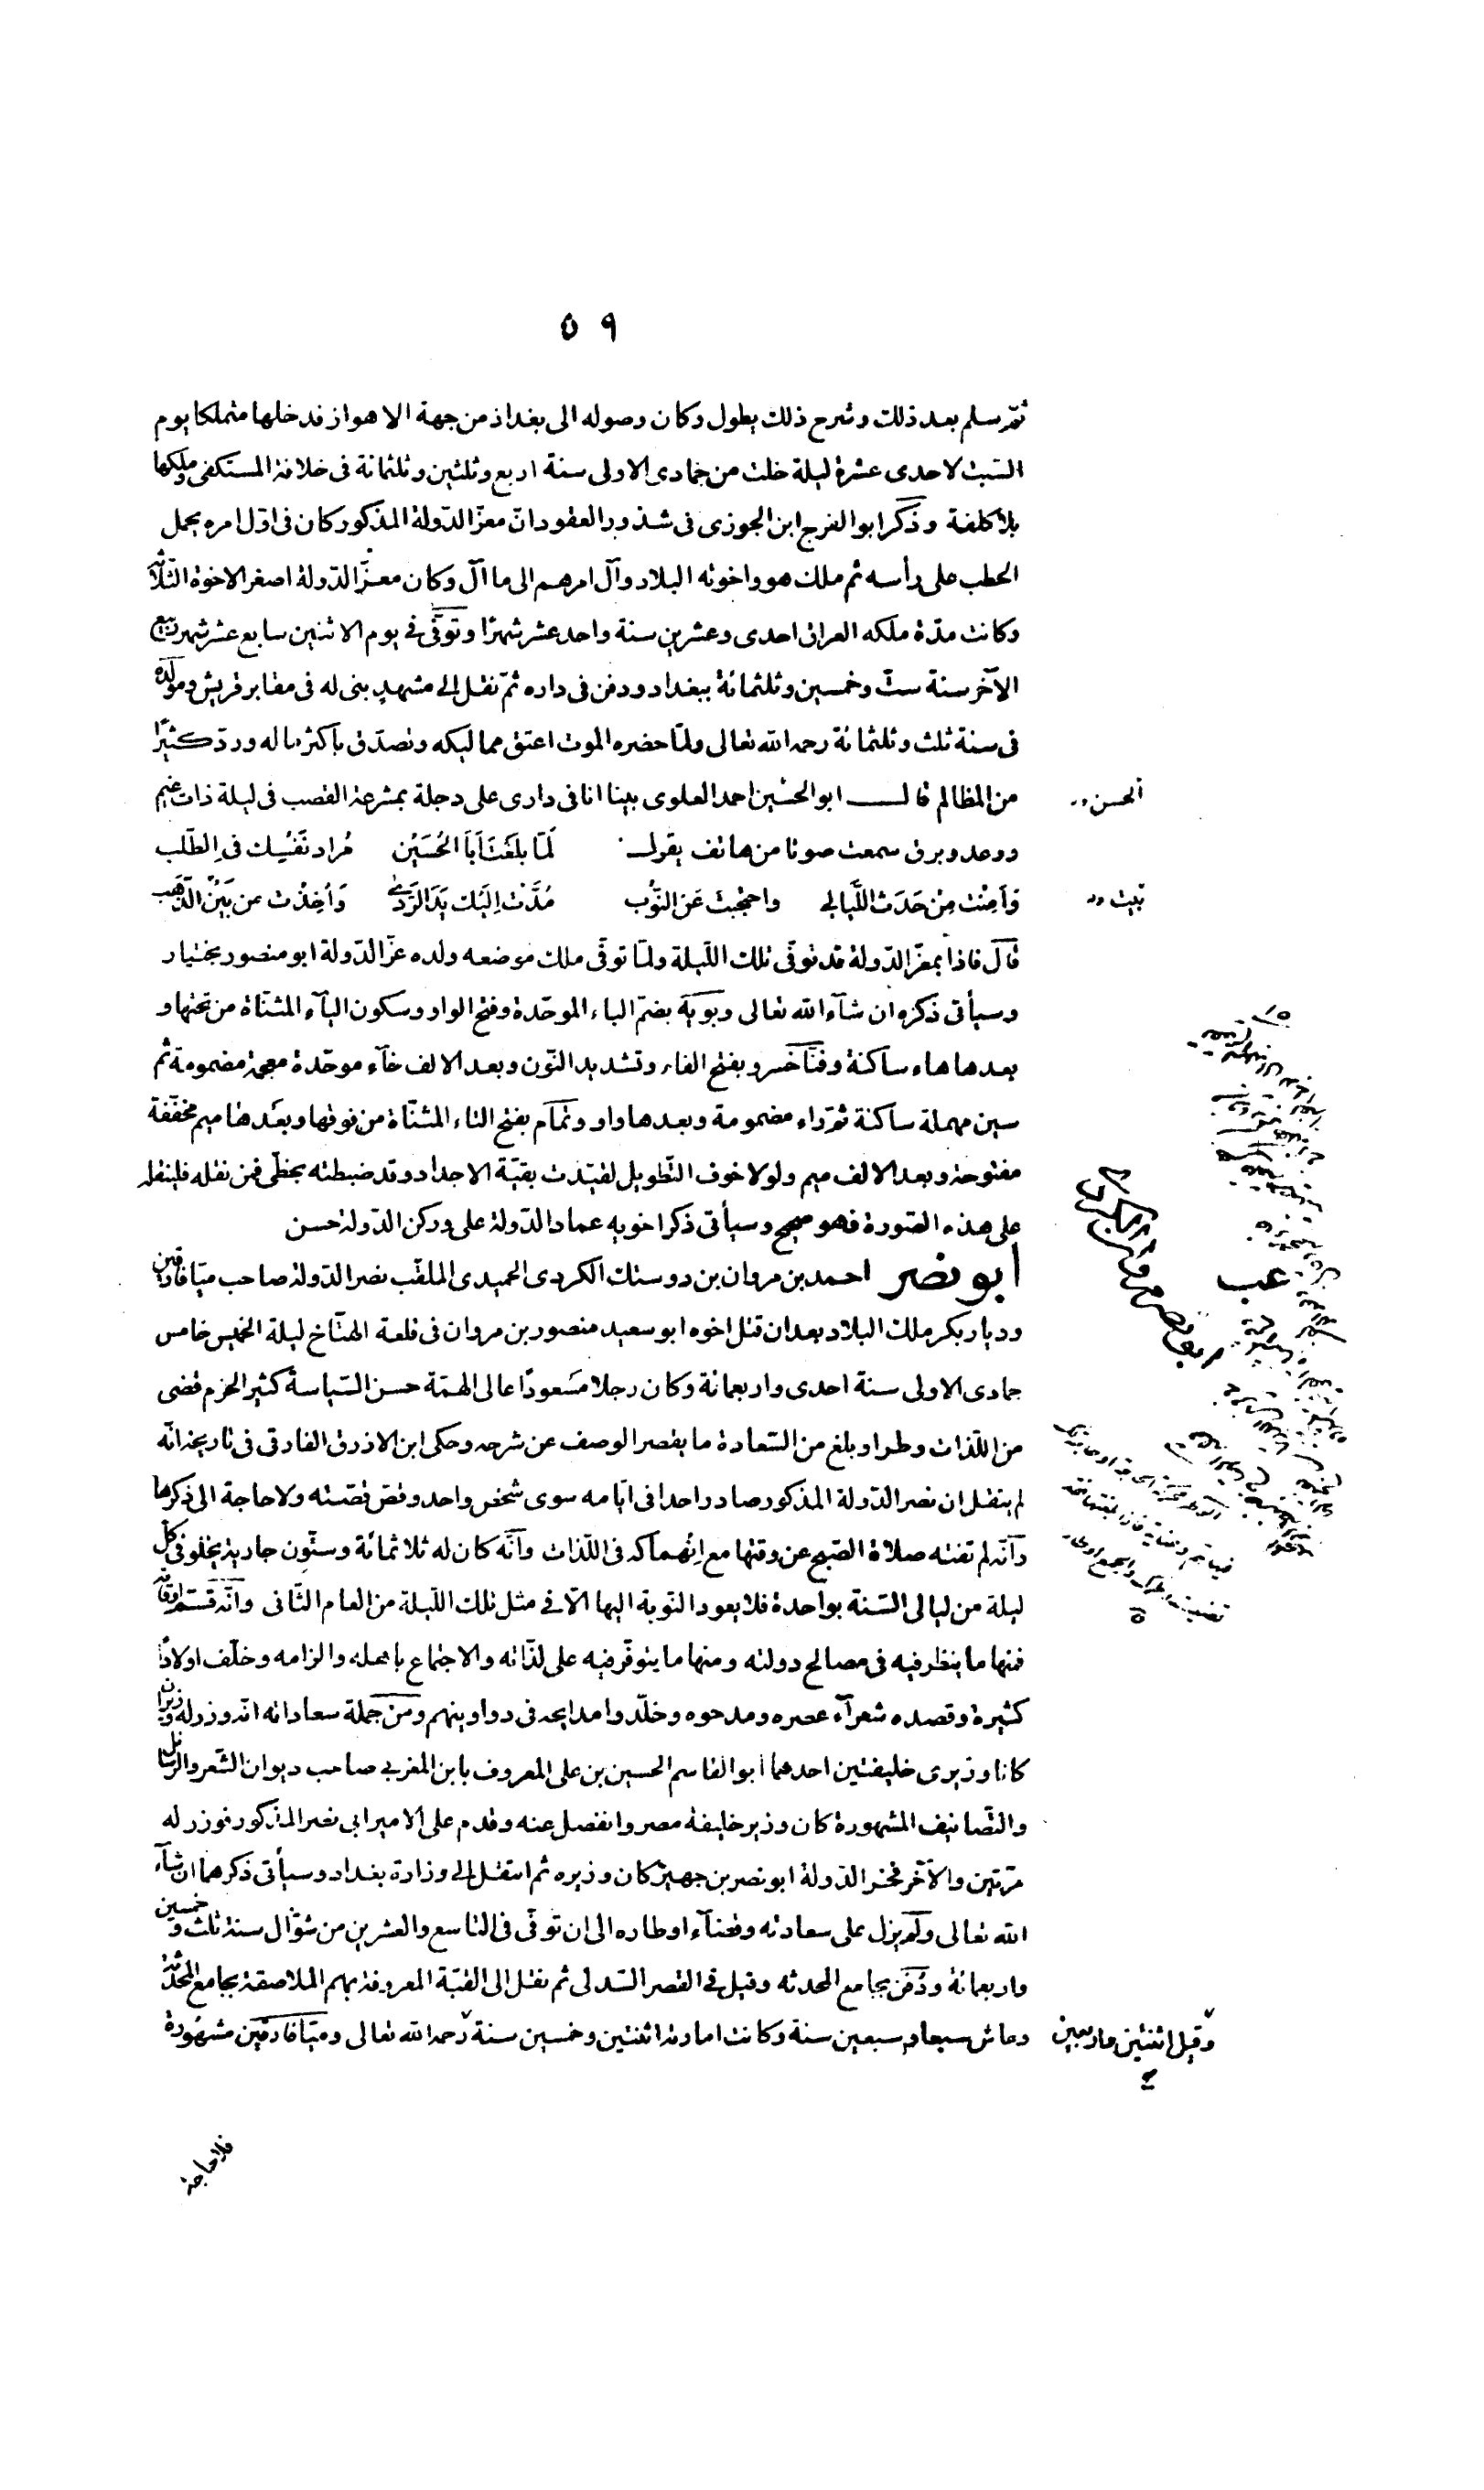 ٥٩
ثمّ سلم بعد ذلك وشرح ذلك يطول وكان وصوله الى بغداذ من جهة الاهواز فدخلها متملكا يوم
السّبت لاحدى عشرة ليلة خلت من جمادى الاولى سنة اربع وثلثين وثلثمائة فى خلافة المستكفى وملكها
بلا كلفة وذكر ابو الفرج ابن الجوزى فى شذور العقود انّ معزّ الدّولة المذكور كان فى اوّل امره يحمل
الحطب على رأسه ثم ملك هو واخوته البلاد وآل امرهم الى ما اٰل وكان معزّ الدّولة اصغر الاخوة الثّلاثة
وكانت مدّة ملكه العراق احدى وعشرين سنة واحد عشر شهرًا وتوفّى فى يوم الاثنين سابع عشر شهر ربيع
الآخر سنة ستّ وخمسين وثلثمائة ببغداد ودفن فى داره ثمّ نقل الى مشهدٍ بنى له فى مقابر قريش ومولده
فى سنة ثلث وثلثمائة رحمه الله تعالى ولمّا حضره الموت اعتق مماليكه وتصدّق باكثر ماله وردّ كثيرًا
من المظالم قال ابو الحسين احمد العلوى بينا انا فى دارى على دجلة بمشرعة القصب فى ليلة ذات غيم
الحسن
ورعد وبرق سمعت صوتا من هاتف يقول لَمّا بلغتَ اَبَا الحُسَيْن مُراد نَفْسِك فى الطّلب
وَاَمِنْت مِنْ حَدَث اللَّيَالى واحتجبت عَن النُّوَب مُدَّت اِلَيْك يَد الرَّدىٰ وَاُخِذْت من بَيْن الذّهب
بيت
قال فاذا بمعزّ الدّولة قد توفّى تلك اللّيلة ولمّا توفّى ملك موضعه ولده عزّ الدّولة ابو منصور بختيار
وسيأتى ذكره ان شآء الله تعالى وبويه بضمّ الباء الموحّدة وفتح الواو وسكون اليآء المثنّاة من تحتها و
بعدها هاء ساكنة وفنّاخسرو بفتح الفاء وتشديد النّون وبعد الالف خآء موحّدة معجمة مضمومة ثم
سين مهملة ساكنة ثمّ راء مضمومة وبعدها واو وتمام بفتح التاء المثنّاة من فوقها وبعدها ميم مخفّفة
مفتوحة وبعد الالف ميم ولولا خوف التّطويل لقيّدت بقيّة الاجداد وقد ضبطته بخطّى فمن نقله فلينقله
على هذه الصّورة فهو صحيح وسيأتى ذكر اخويه عماد الدّولة على وركن الدّولة حسن
أبو نصر احمد بن مروان بن دوستك الكردى الحميدى الملقّب نصر الدّولة صاحب ميّافارقين
وديار بكر ملك البلاد بعد ان قتل اخوه ابو سعيد منصور بن مروان فى قلعة الهتّاخ ليلة الخميس خامس
جمادى الاولى سنة احدى واربعمائة وكان رجلا مَسعودًا عالى الهمّة حسن السّياسة كثير الحزم قضى
من اللّذات وطرا وبلغ من السّعادة ما يقصر الوصف عن شرحه وحكى ابن الازرق الفارقى فى تاريخه انّه
لم ينقل ان نصر الدّولة المذكور صادر احدا فى ايّامه سوى شخص واحد وقصّ قصّته ولا حاجة الى ذكرها
وآنّه لم تفته صلاة الصّبح عن وقتها مع انهماكه فى اللّذات وآنّه كان له ثلاثمائة وستّون جارية يخلو فى كلّ
ليلة من ليالى السّنة بواحدة فلا يعود النّوبة اليها الاّ فى مثل تلك اللّيلة من العام الثّانى وانّه قسّم اوقاته
فمنها ما ينظر فيه فى مصالح دولته ومنها ما يتوفّر فيه على لذّاته والاجتماع باهله والزامه وخلّف اولادًا
كثيرة وقصده شعرآء عصره ومدحوه وخلّدوا مدايحه فى دواوينهم ومن جملة سعاداته انّه وزر له وزيران
كانا وزيرى خليفتين احدهما ابو القاسم الحسين بن على المعروف بابن المغربى صاحب ديوان الشّعر والرسائل
والتّصانيف المشهورة كان وزير خليفة مصر وانفصل عنه وقدم على الامير ابى نصر المذكور فوزر له
مرّتين والآخر فخر الدّولة ابو نصر بن جهير كان وزيره ثم انتقل الى وزارة بغداد وسيأتى ذكرهما ان شآء
الله تعالى ولم يزل على سعادته وقضآء اوطاره الى ان توفّى فى التاسع والعشرين من شوّال سنة ثلث وخمسين
واربعمائة ودُفن بجامع المحدثه وقيل فى القصر السّدلى ثم نقل الى القبّة المعروفة بهم الملاصقة بجامع المحدثة
وعاش سبعا وسبعين سنة وكانت امارته اثنتين وخمسين سنة رحمه الله تعالى وميّافارقين مشهورة
وقيل اثنتين واربعين
فلا حاجة